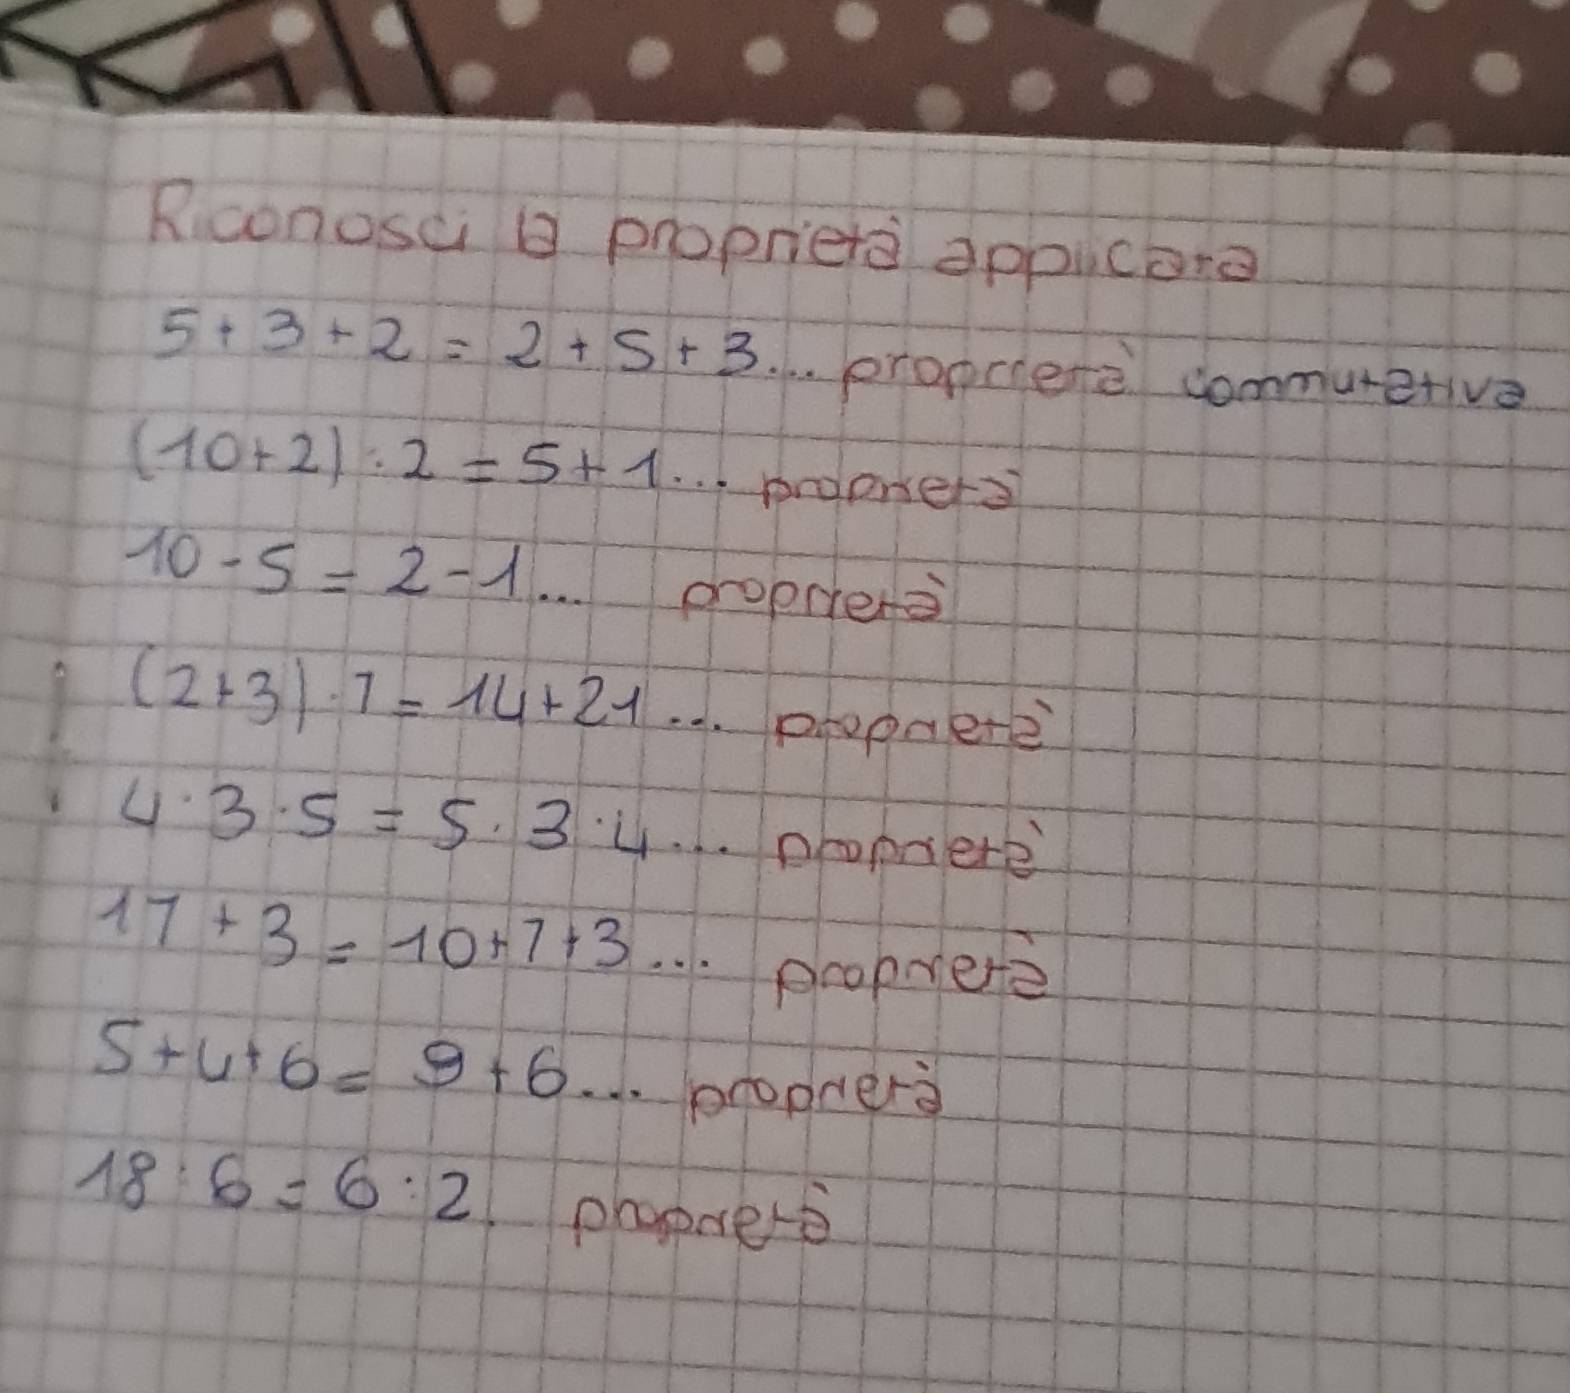 Riconosci la proprietà applicata
5+3+2 = 2+5+3... proprietà commutativa
(10+2) : 2 = 5+1... proprietà
10-5 = 2-1... proprietà
(2+3)·7 = 14+21... proprietà
4·3·5 = 5·3·4... proprietà
17+3 = 10+7+3... proprietà
5+4+6 = 9+6... proprietà
18:6 = 6:2. proprietà